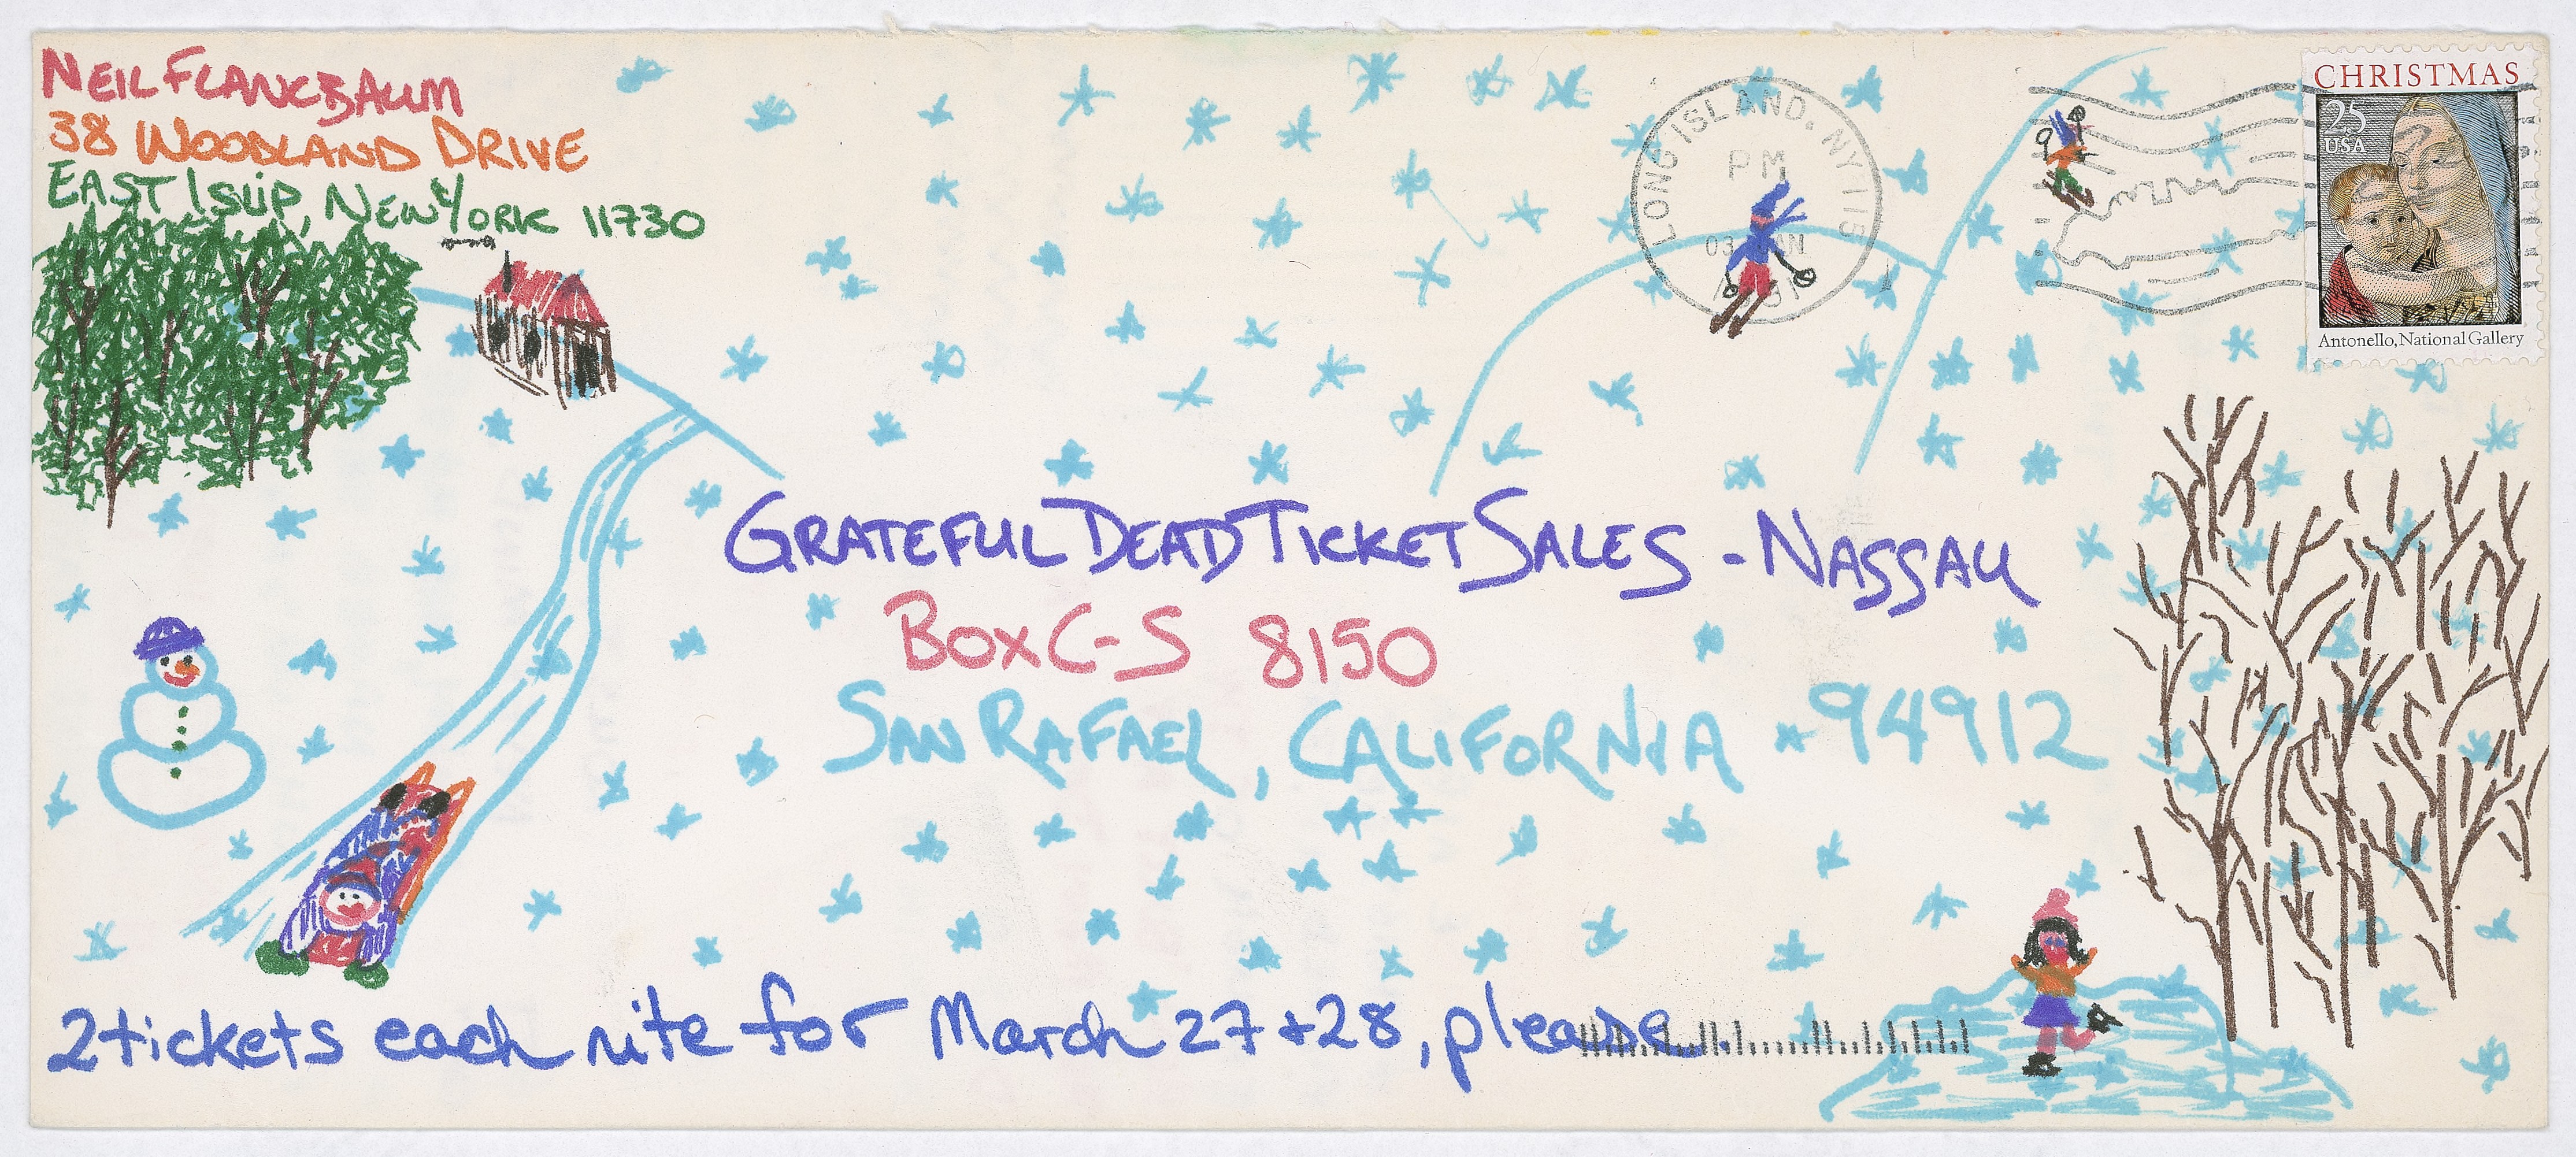 NEIL FLANCBAUM
38 WOODLAND DRIVE
EAST ISLIP, NEW YORK 11730
LONG ISLAND, NY 115
PM
03
CHRISTMAS
25
USA
Antonello, National Gallery
GRATEFUL DEAD TICKET SALES - NASSAU
BOX C-S 8150
SAN RAFAEL, CALIFORNIA 94912
2 tickets each nite for March 27 + 28, please